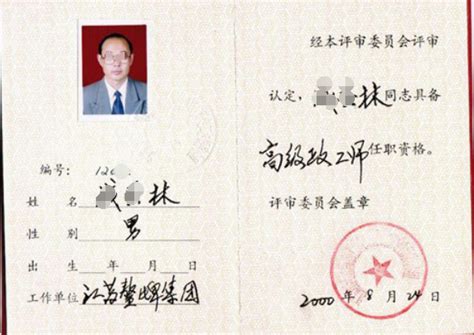 编号: 12
姓名 林
性别 男
出生 年 月 日
工作单位 江苏 集团
经本评审委员会评审
认定, 林同志具备
高级政工师任职资格。
评审委员会盖章
2000年8月24日